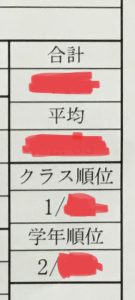 合計
平均
クラス順位
1/
学年順位
2/